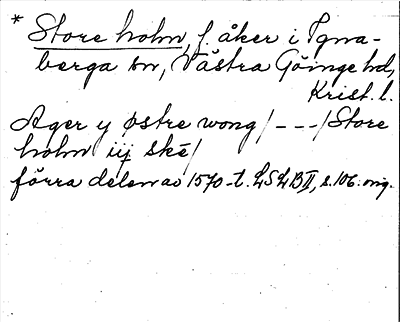 * Store holm, f. åker i Igna-
berga sn, Västra Göinge hd,
Krist. l.
Ager y østre wong / --- / Store
holm iij ske /
förra delen av 1570-t. LSLB II, s. 106. orig.